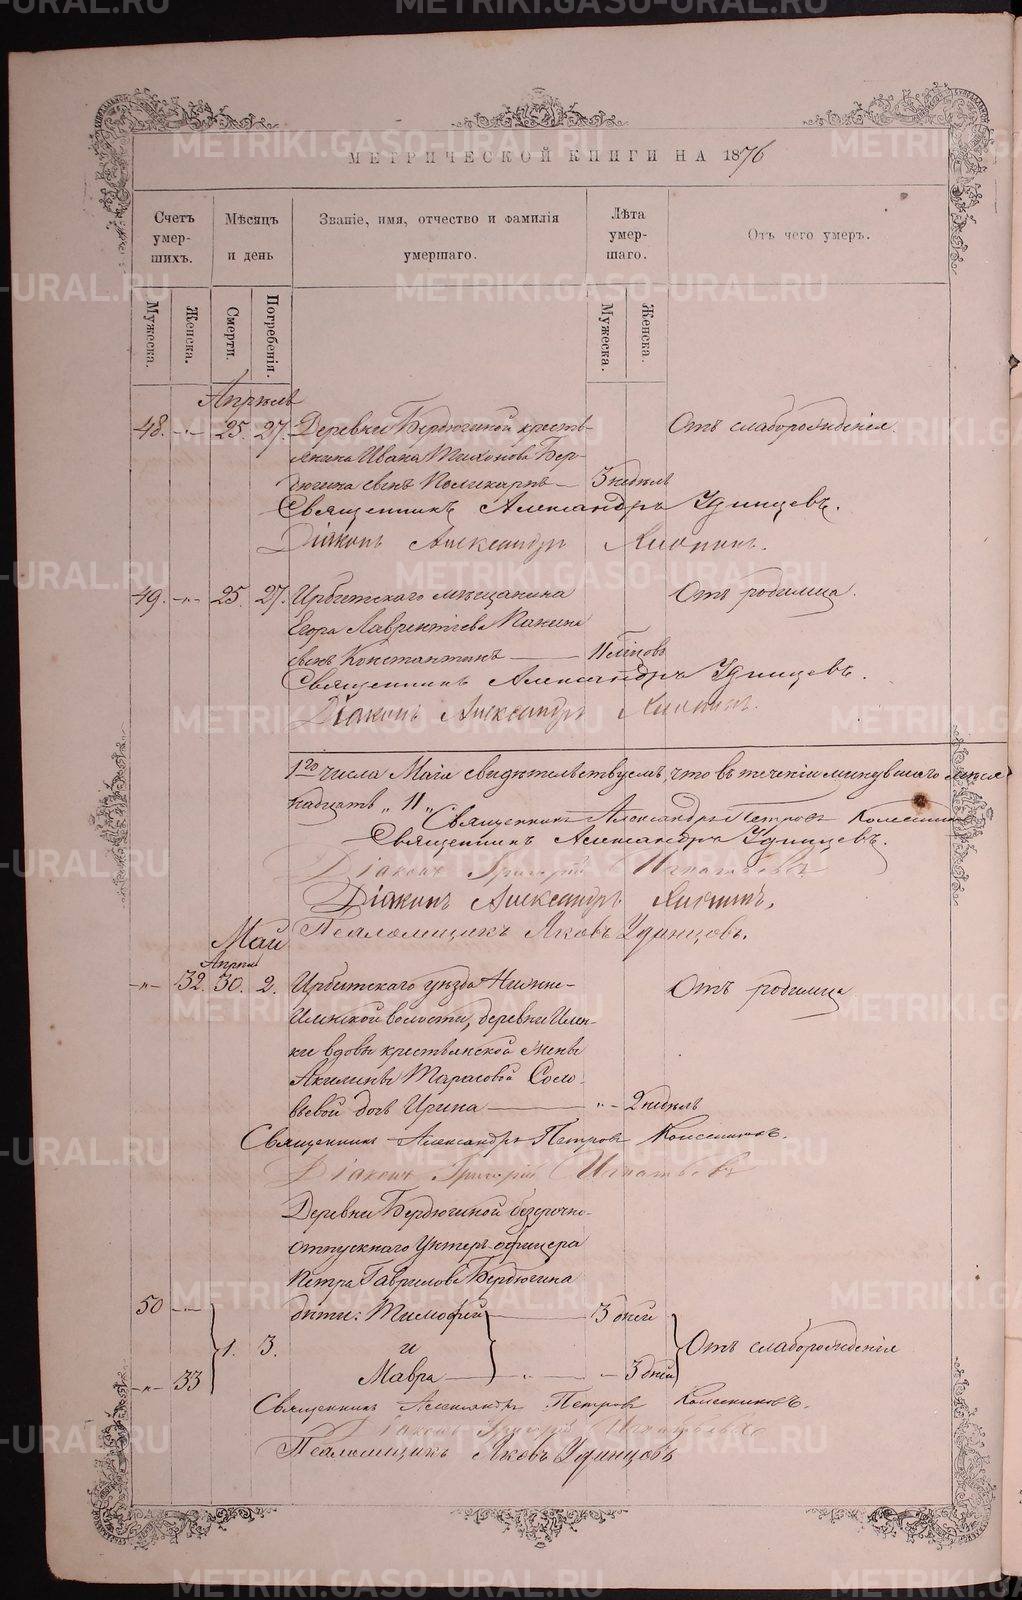 МЕТРИЧЕСКОЙ КНИГИ НА 1876
Счетъ умер-шихъ.
Мѣсяцъ и день
Званіе, имя, отчество и фамилія умершаго.
Лѣта умер-шаго.
Отъ чего умеръ.
Мужеска.
Женска.
Смерти.
Погребенія.
Мужеска.
Женска.
Апрѣль
48. -"- 25. 27. Деревни Бердюгиной кресть- Отъ слаборожденія.
янина Ивана Тихонова Бер-
дюгина сынъ Поликарпъ — 3 недѣль
Священникъ Александръ Удинцевъ.
Діаконъ Александръ
49. -"- 25. 27. Ирбитскаго мѣщанина Отъ родимца.
Егора Лаврентіева Панина
сынъ Константинъ — 11 мѣсяцовъ
Священникъ Александръ Удинцевъ.
Діаконъ Александръ
1го числа Маія свидѣтельствуемъ, что въ теченіи минувшаго
"11"
Священникъ Александръ Петровъ Колесниковъ
Священникъ Александръ Удинцевъ.
Діаконъ Григорій Игнатьевъ
Діаконъ Александръ
Псаломщикъ Яковъ Удинцовъ.
Май
Апрѣля
-"- 32. 30. 2. Ирбитскаго уѣзда Нижне- Отъ родимца
Илинской волости, деревни Илин-
ки вдовы крестьянской жены
Акилины Тарасовой Соло-
вьевой дочь Ирина — "- 2 недѣль
Священникъ Александръ Петровъ Колесниковъ.
Діаконъ Григорій Игнатьевъ
Деревни Бердюгиной безсрочно-
отпускнаго унтеръ-офицера
Петра Гаврилова Бердюгина
50 -"- дѣти: Тимофей — 3 дней
1. 3. и Отъ слаборожденія
-"- 33 Мавра — " — 3 дней
Священникъ Александръ Петровъ Колесниковъ.
Діаконъ Григорій Игнатьевъ
Псаломщикъ Яковъ Удинцовъ
METRIKI.GASO-URAL.RU